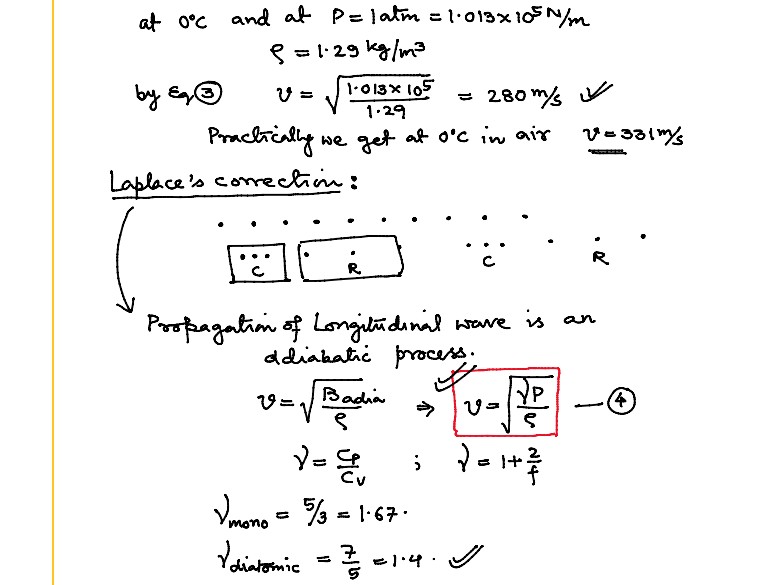 at 0°C and at P = 1atm = 1.013×10⁵ N/m
ρ = 1.29 kg/m³
by Eq ③ v = √(1.013×10⁵/1.29) = 280 m/s ✓
Practically we get at 0°C in air v = 331 m/s
Laplace's correction :
C R C R
Propagation of Longitudinal wave is an
adiabatic process.
v = √(Badia/ρ) ⇒ v = √(γP/ρ) — ④
γ = Cp/Cv ; γ = 1 + 2/f
γmono = 5/3 = 1.67.
γdiatomic = 7/5 = 1.4. ✓